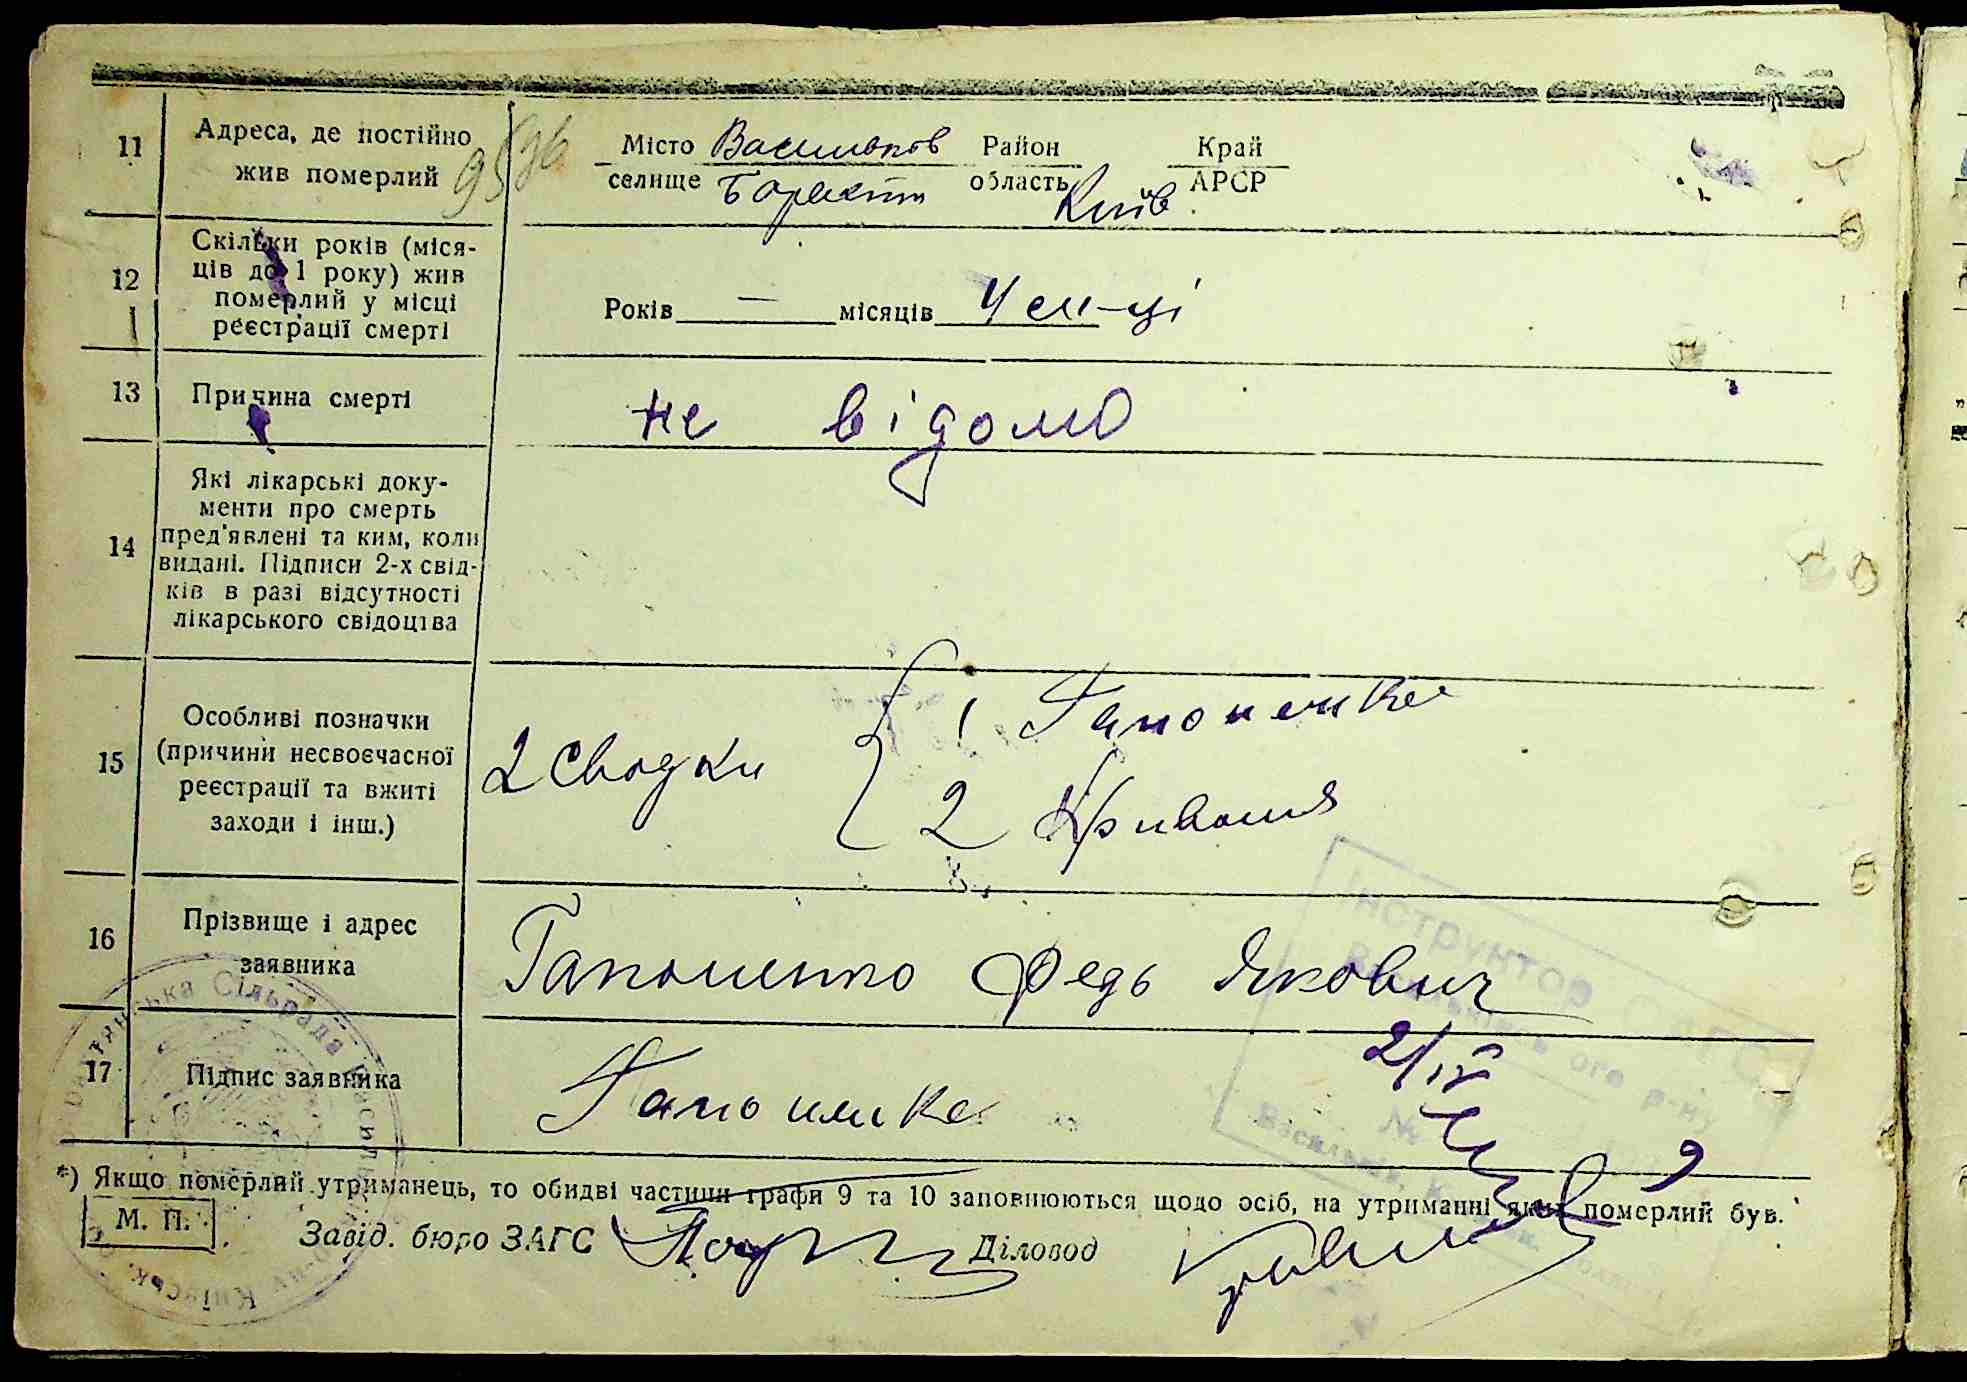 11
Адреса, де постійно
жив померлий
95 96
Місто Васильков Район Край
селище Барахти область Київ АРСР
12
Скільки років (міся-
ців до 1 року) жив
померлий у місці
реєстрації смерті
Років — місяців 4 м-ці
13
Причина смерті
не відомо
14
Які лікарські доку-
менти про смерть
пред'явлені та ким, коли
видані. Підписи 2-х свід-
ків в разі відсутності
лікарського свідоцтва
15
Особливі позначки
(причини несвоєчасної
реєстрації та вжиті
заходи і інш.)
2 сводки
1 Гапоненко
2
16
Прізвище і адрес
заявника
Гапоненко Федь Якович
17
Підпис заявника
Гапоненко
2/IV
*) Якщо померлий утриманець, то обидві частини графи 9 та 10 заповнюються щодо осіб, на утриманні яких померлий був.
М. П.
Завід. бюро ЗАГС
Діловод
Сільрада
Інструктор